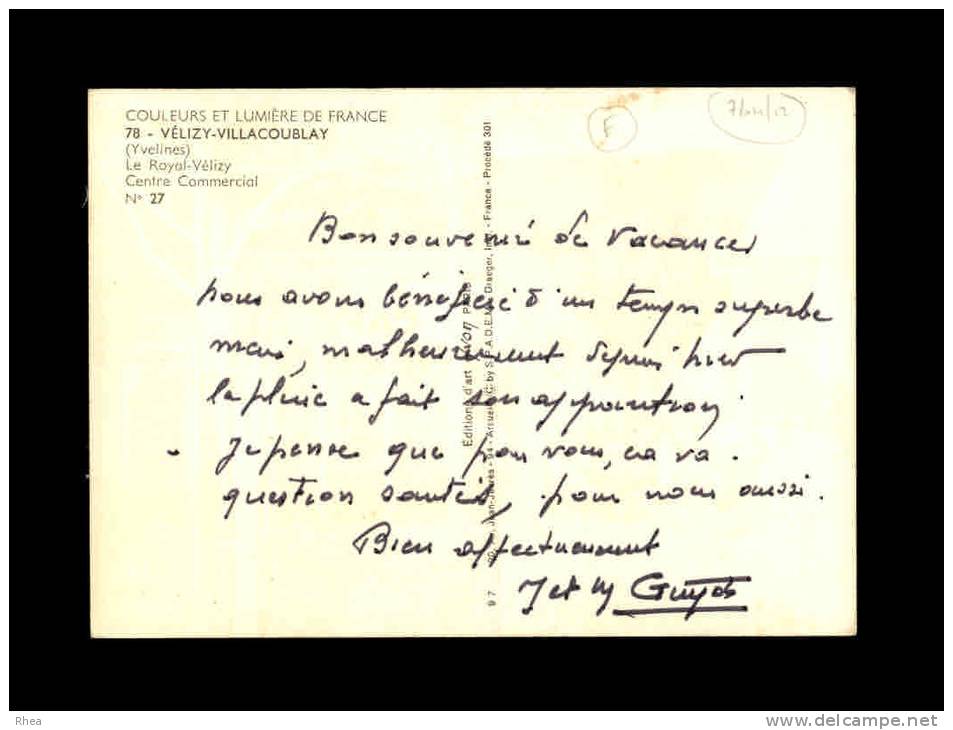 COULEURS ET LUMIÈRE DE FRANCE
78 - VÉLIZY-VILLACOUBLAY
(Yvelines)
Le Royal-Vélizy
Centre Commercial
N° 27
F
Bon souvenir de Vacances
nous avons bénéficié d'un temps superbe
mais, malheureusement depuis hier
la pluie a fait son apparition
Je pense que pour vous, ca va.
question santés, pour nous aussi.
Bien affectueusement
J et M Guyot
Editions d'art YVON PARIS
Jean-Jaurès - 94 - Arcueil - C. by S.P.A.D.E.M. Draeger, Imp. - France - Procédé 301
9 7
Rhea
www.delcampe.net